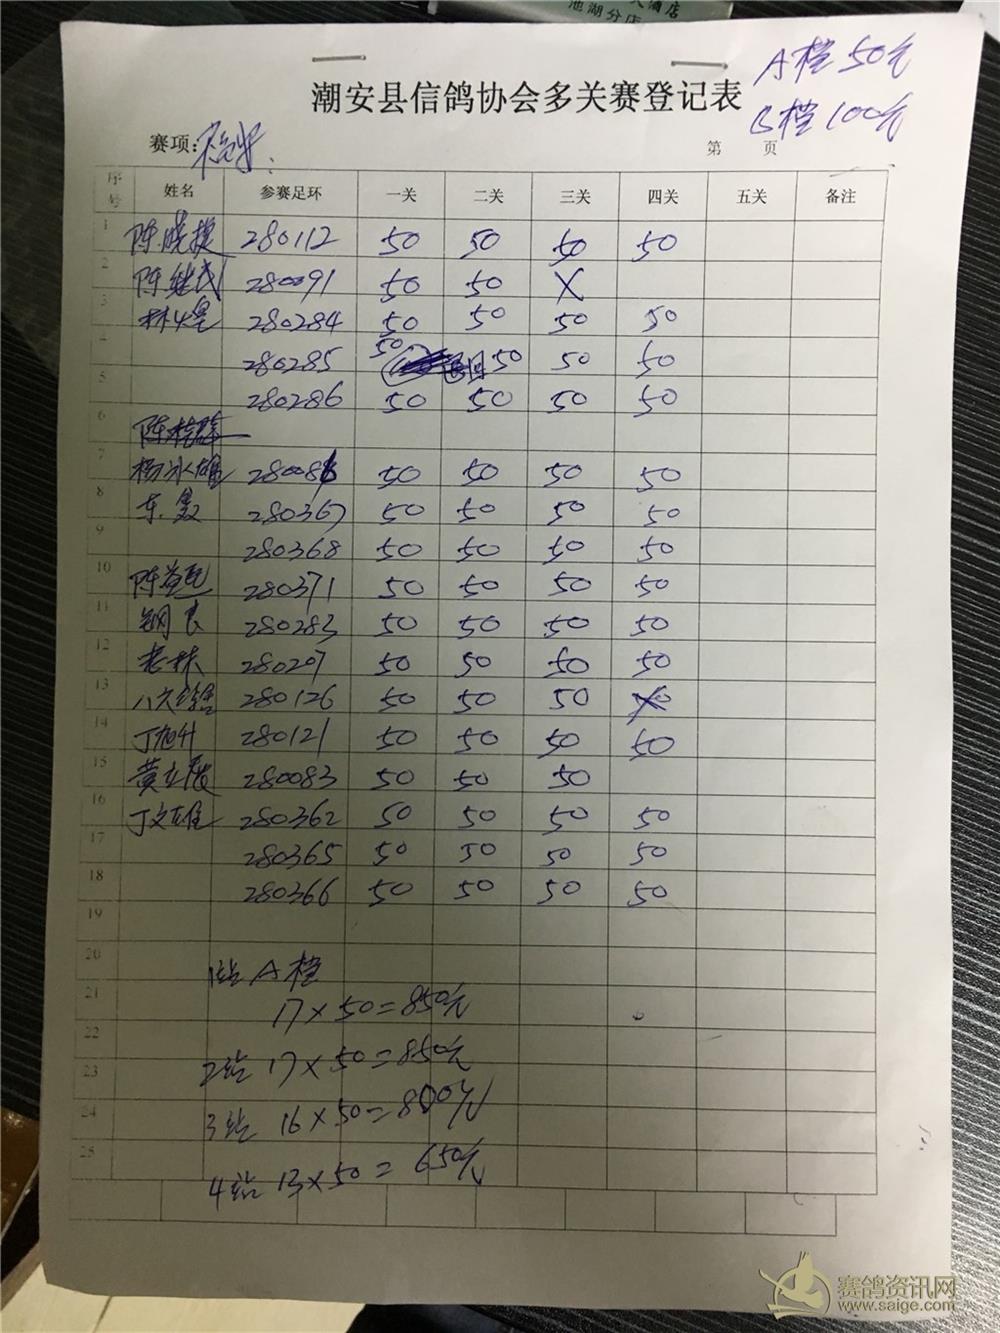 大酒店
池湖分店
A档 50元
潮安县信鸽协会多关赛登记表
B档 100元
赛项:
第 页
序号 姓名 参赛足环 一关 二关 三关 四关 五关 备注
1 陈晓捷 280112 50 50 50 50
2 陈继武 280091 50 50 X
3 林火煌 280284 50 50 50 50
4 280285 50 50 50 50
5 280286 50 50 50 50
6 陈
7 杨冰雄 28008 50 50 50 50
8 280367 50 50 50 50
9 280368 50 50 50 50
10 陈 280371 50 50 50 50
11 钢良 280283 50 50 50 50
12 老林 280207 50 50 50 50
13 280126 50 50 50
14 丁旭升 280121 50 50 50 50
15 黄立 280083 50 50 50
16 丁文雄 280362 50 50 50 50
17 280365 50 50 50 50
18 280366 50 50 50 50
19
20 1站 A档
21 17×50=850元
22
23 2站 17×50=850元
24 3站 16×50=800元
25 4站 13×50= 650元
赛鸽资讯网
www.saige.com